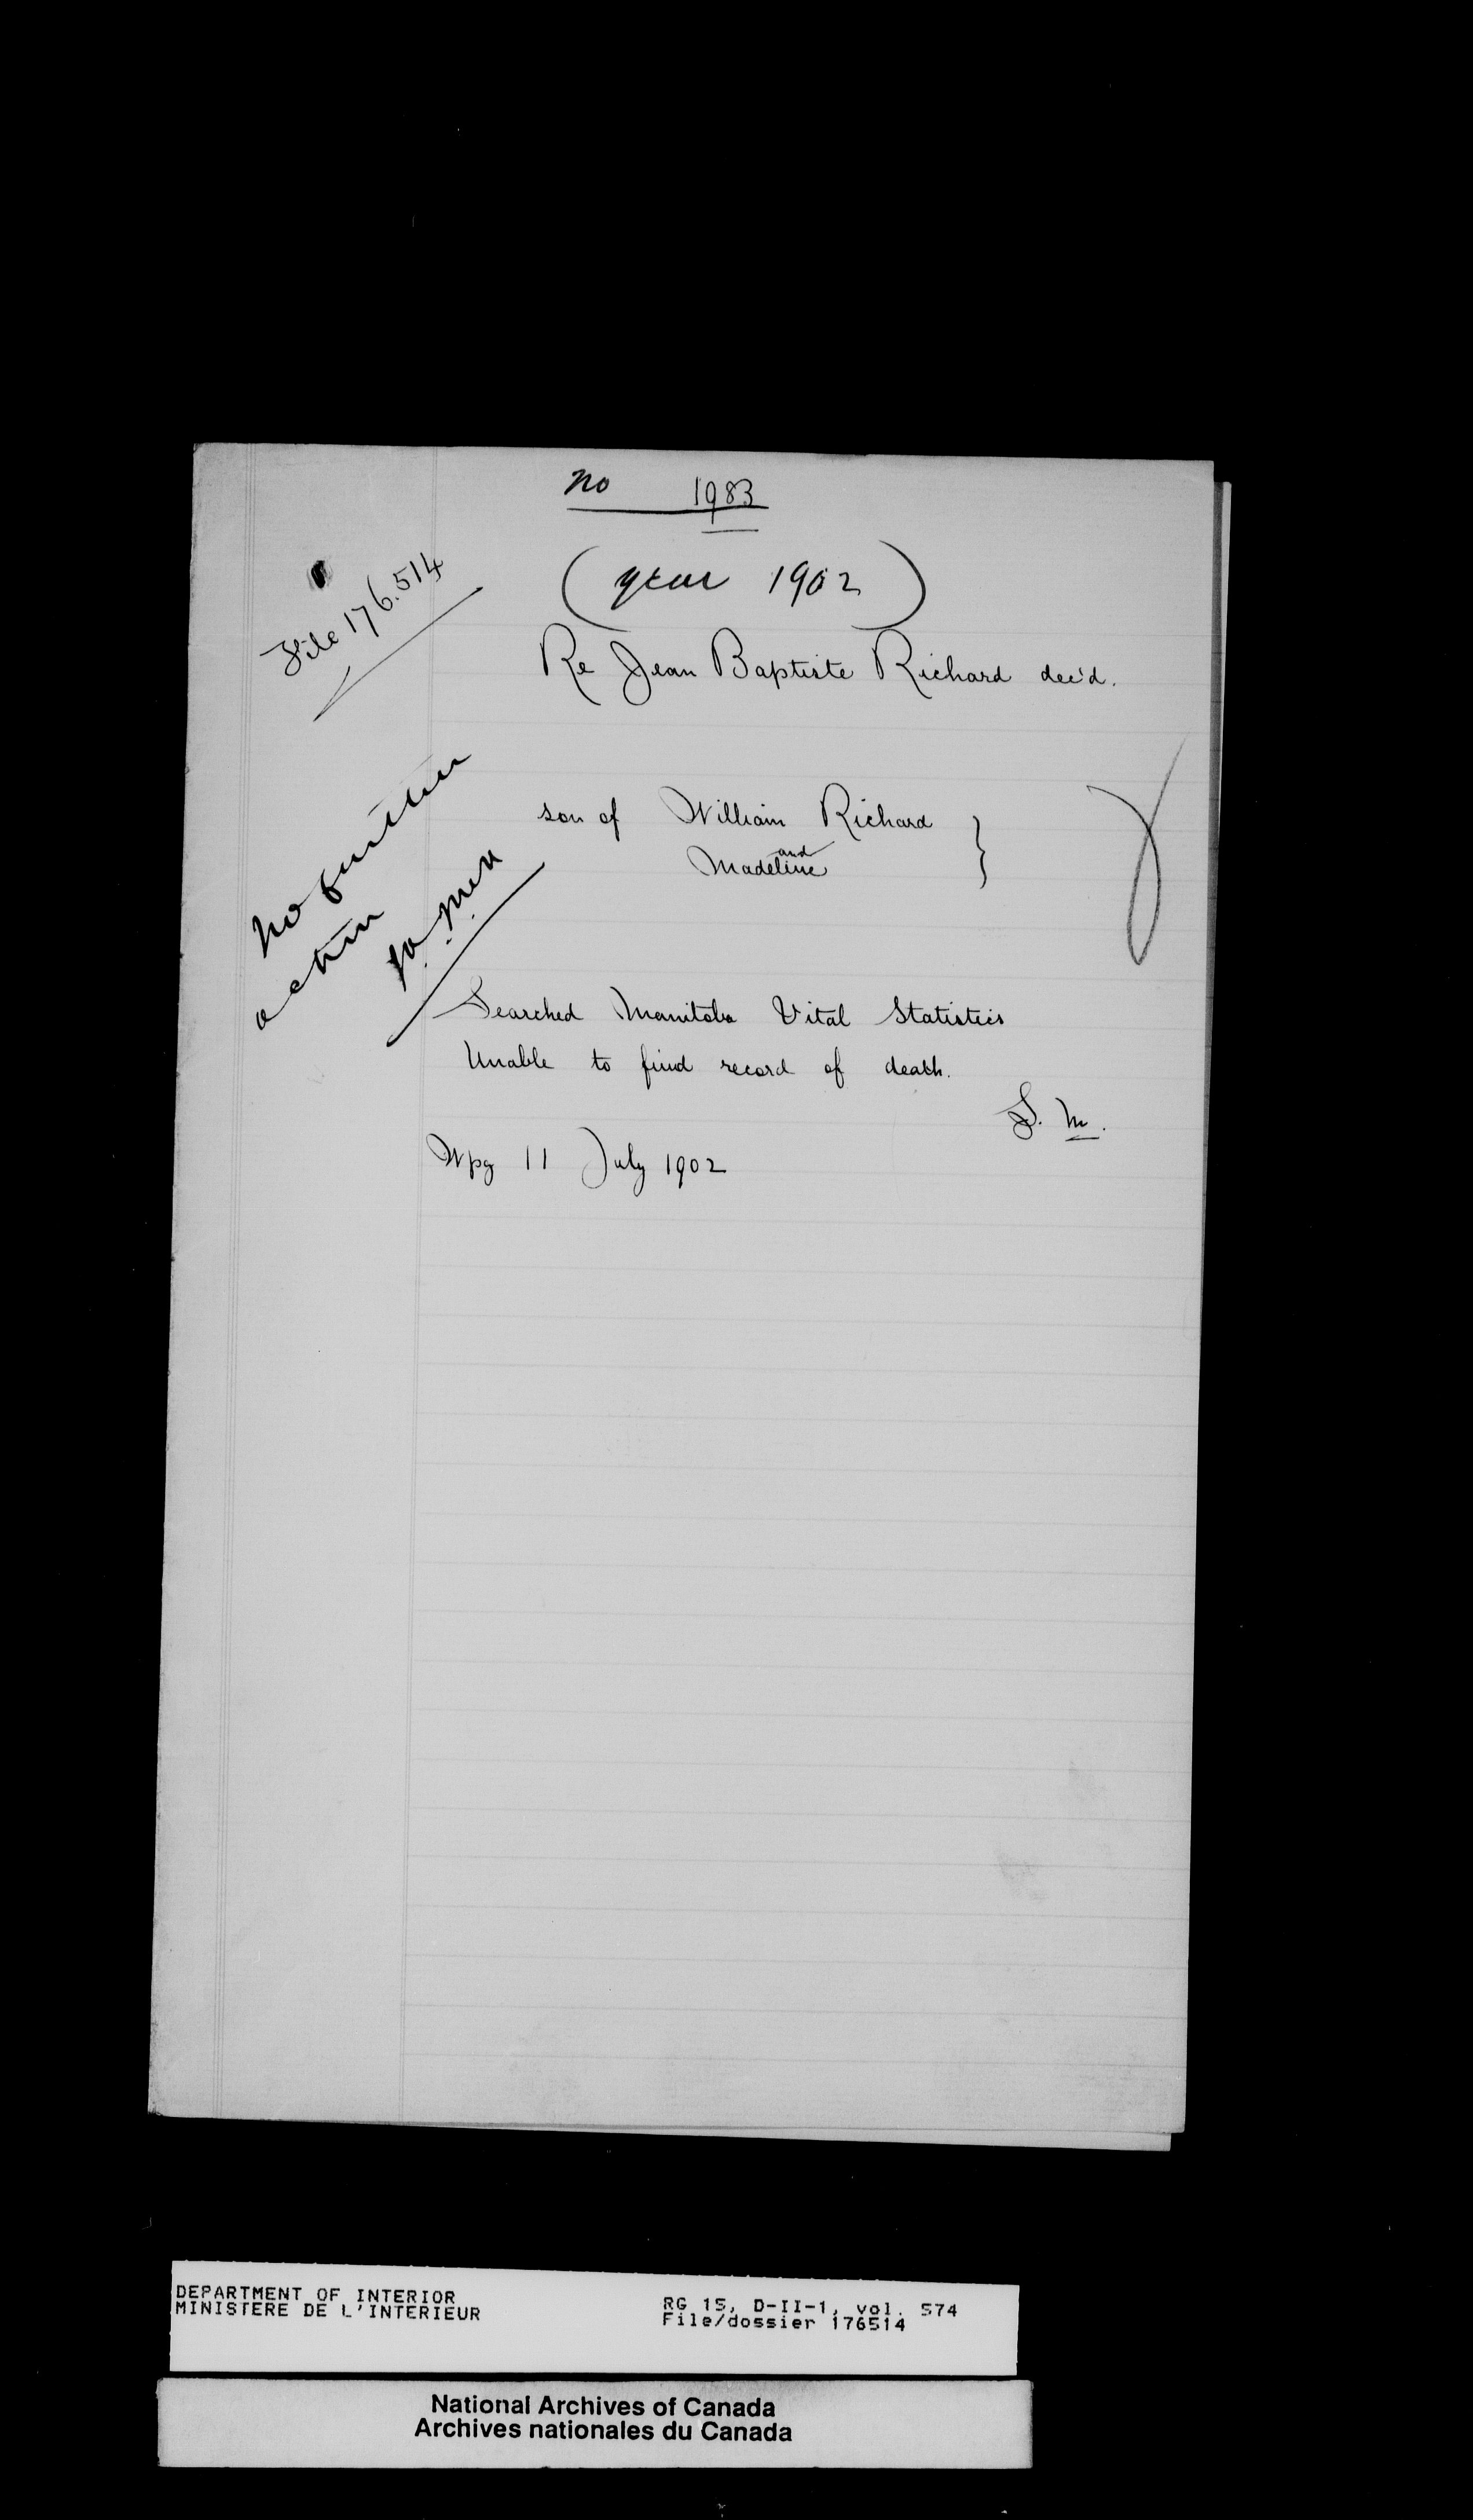 no 1983
(year 1902)
File 176.514
Re Jean Baptiste Richard dec'd.
son of William Richard
and
Madeline
no further
action
Searched Manitoba Vital Statistics
Unable to find record of death.
S. M.
Wpg 11 July 1902
DEPARTMENT OF INTERIOR
MINISTERE DE L'INTERIEUR
RG 15, D-II-1, vol. 574
File/dossier 176514
National Archives of Canada
Archives nationales du Canada